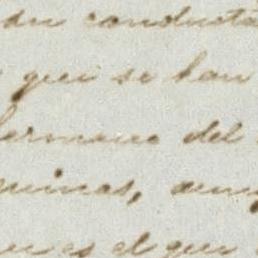 su conducta
que se han
hermano del
minas, aunq
es el que